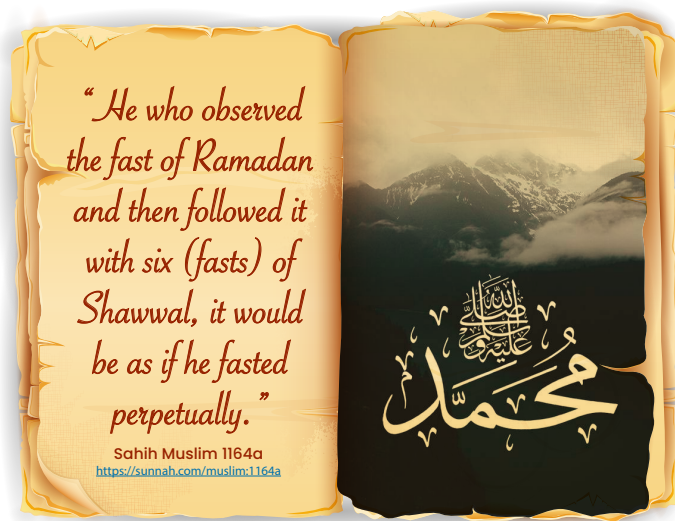 “He who observed
the fast of Ramadan
and then followed it
with six (fasts) of
Shawwal, it would
be as if he fasted
perpetually.”
Sahih Muslim 1164a
https://sunnah.com/muslim:1164a
صلى الله عليه وسلم
محمد